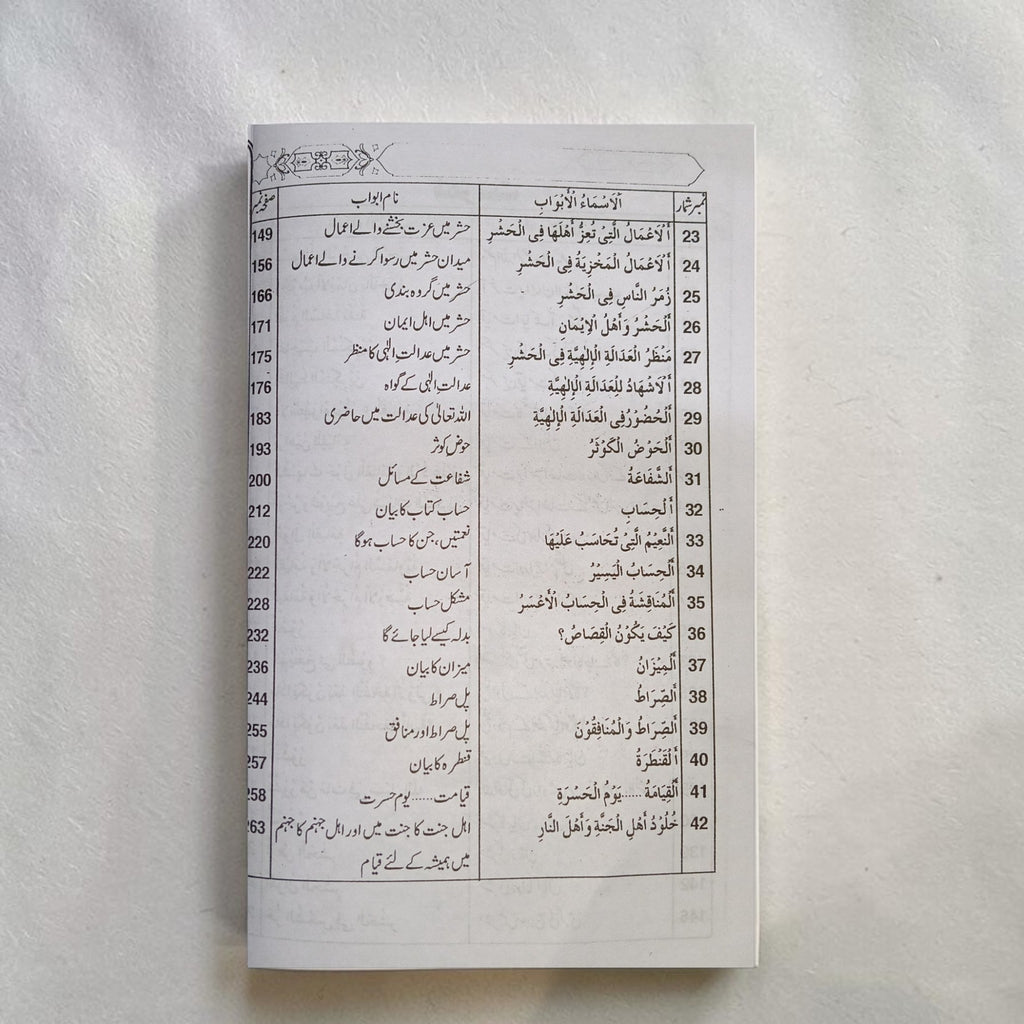 نمبر شمار اَلْاَسْمَاءُ الْأَبْوَابِ نام ابواب صفحہ نمبر
23 اَلْاَعْمَالُ الَّتِیْ تُعِزُّ أَهْلَهَا فِی الْحَشْرِ حشر میں عزت بخشنے والے اعمال 149
24 اَلْاَعْمَالُ الْمَخْزِيَةُ فِی الْحَشْرِ میدان حشر میں رسوا کرنے والے اعمال 156
25 زُمَرُ النَّاسِ فِی الْحَشْرِ حشر میں گروہ بندی 166
26 اَلْحَشْرُ وَأَهْلُ الْاِيْمَانِ حشر میں اہل ایمان 171
27 مَنْظَرُ الْعَدَالَةِ الْإِلٰهِيَّةِ فِی الْحَشْرِ حشر میں عدالتِ الٰہی کا منظر 175
28 اَلْاَشْهَادُ لِلْعَدَالَةِ الْإِلٰهِيَّةِ عدالتِ الٰہی کے گواہ 176
29 اَلْحُضُوْرُ فِی الْعَدَالَةِ الْإِلٰهِيَّةِ اللہ تعالیٰ کی عدالت میں حاضری 183
30 اَلْحَوْضُ الْكَوْثَرُ حوض کوثر 193
31 اَلشَّفَاعَةُ شفاعت کے مسائل 200
32 اَلْحِسَابِ حساب کتاب کا بیان 212
33 اَلنَّعِيْمُ الَّتِیْ تُحَاسَبُ عَلَيْهَا نعمتیں، جن کا حساب ہوگا 220
34 اَلْحِسَابُ الْيَسِيْرُ آسان حساب 222
35 اَلْمُنَاقِشَةُ فِی الْحِسَابُ الْأَعْسَرُ مشکل حساب 228
36 كَيْفَ يَكُوْنُ الْقِصَاصُ؟ بدلہ کیسے لیا جائے گا 232
37 اَلْمِيْزَانُ میزان کا بیان 236
38 اَلصِّرَاطُ پل صراط 244
39 اَلصِّرَاطُ وَالْمُنَافِقُوْنَ پل صراط اور منافق 255
40 اَلْقَنْطَرَةُ قنطرہ کا بیان 257
41 اَلْقِيَامَةُ ......يَوْمُ الْحَسْرَةِ قیامت......یوم حسرت 258
42 خُلُوْدُ أَهْلِ الْجَنَّةِ وَأَهْلَ النَّارِ اہل جنت کا جنت میں اور اہل جہنم کا جہنم 263
میں ہمیشہ کے لئے قیام